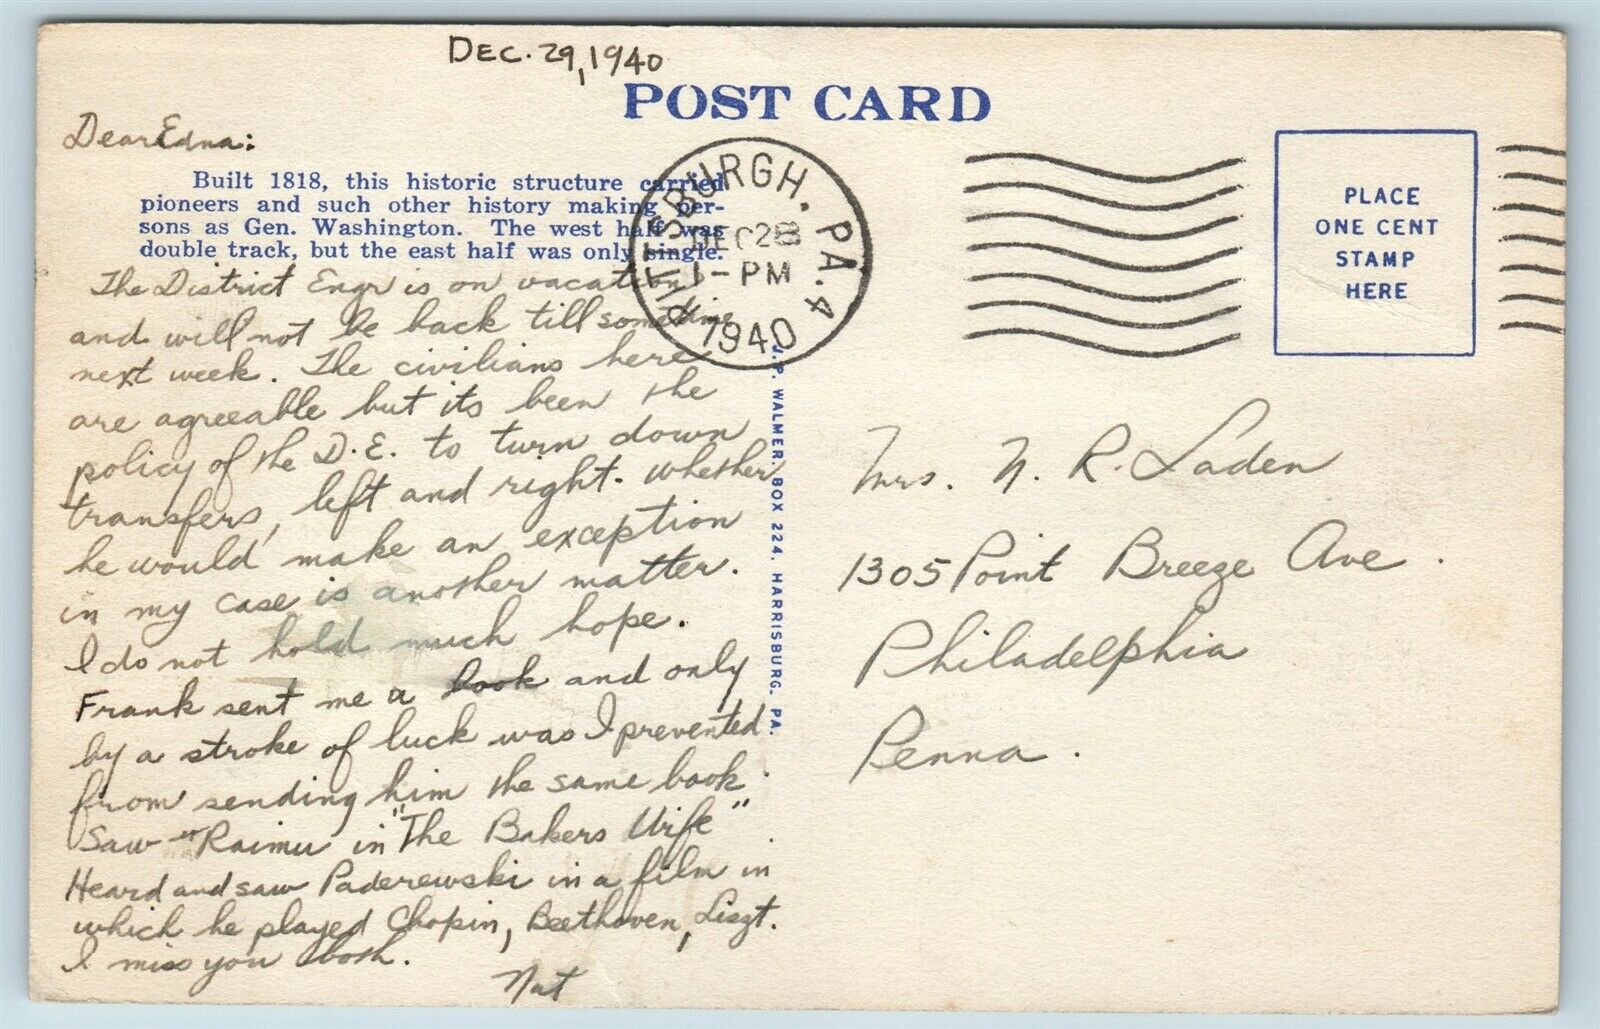 DEC. 29, 1940
POST CARD
Dear Edna:
Built 1818, this historic structure carried
pioneers and such other history making per-
sons as Gen. Washington. The west half was
double track, but the east half was only single.
The District Engr is on vacation
and will not be back till sometime
next week. The civilians here
are agreeable but its been the
policy of the D.E. to turn down
transfers, left and right. whether
he would make an exception
in my case is another matter.
I do not hold much hope.
Frank sent me a book and only
by a stroke of luck was I prevented
from sending him the same book.
Saw Raimu in "The Bakers Wife"
Heard and saw Paderewski in a film in
which he played Chopin, Beethoven, Liszt.
I miss you both.
Nat
PITTSBURGH, PA. 4
DEC 28
1-PM
1940
PLACE
ONE CENT
STAMP
HERE
J. P. WALMER, BOX 224, HARRISBURG, PA.
Mrs. N. R. Laden
1305 Point Breeze Ave.
Philadelphia
Penna.